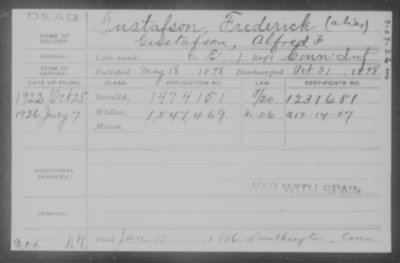 DEAD
Gustafson, Frederick (alias)
NAME OF SOLDIER: Gustafson, Alfred F
SERVICE: Late rank Co E, 1 Reg't Conn Inf
TERM OF SERVICE: Enlisted May 18 1898 Discharged Oct 31, 1898
DATE OF FILING. CLASS. APPLICATION NO. LAW. CERTIFICATE NO.
1922 Oct 25 Invalid, 1474151 1231681
1926 July 7 Widow, 1547469
Minor,
ADDITIONAL SERVICES:
WAR WITH SPAIN
REMARKS:
Died Jan 19 1926, at Southington, Conn